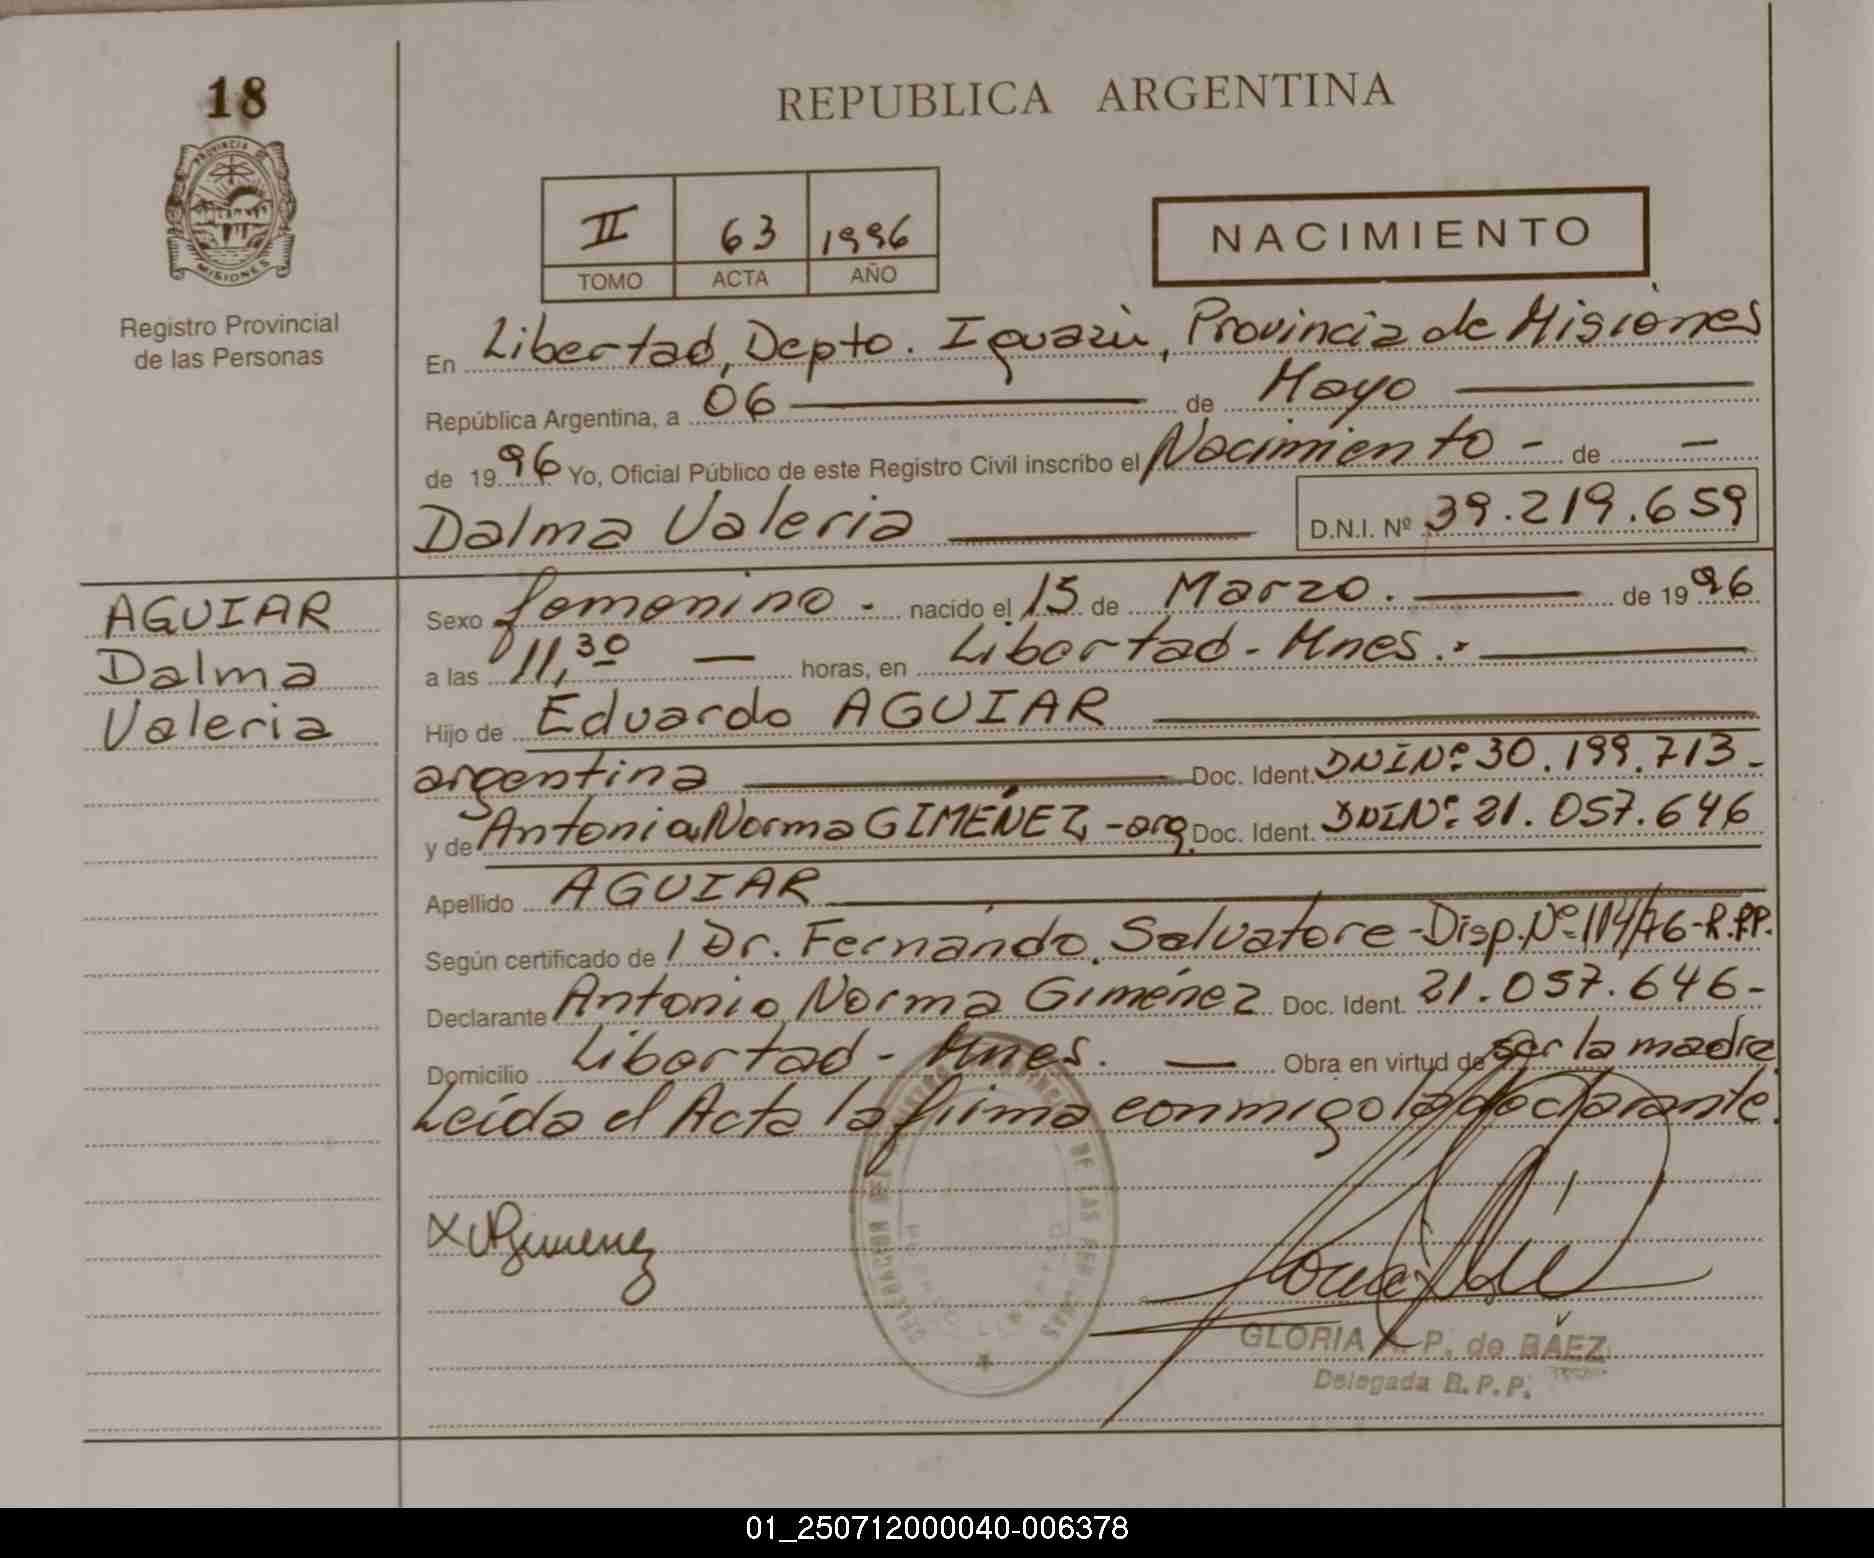 18
REPUBLICA ARGENTINA
PROVINCIA DE
MISIONES
Registro Provincial
de las Personas
II 63 1996
TOMO ACTA AÑO
NACIMIENTO
En Libertad, Depto. Iguazú, Provincia de Misiones
República Argentina, a 06 de Mayo
de 1996 Yo, Oficial Público de este Registro Civil inscribo el Nacimiento - de -
Dalma Valeria D.N.I. Nº 39.219.659
AGUIAR
Dalma
Valeria
Sexo femenino - nacido el 15 de Marzo. de 1996
a las 11,30 — horas, en Libertad - Mnes.-
Hijo de Eduardo AGUIAR
argentina Doc. Ident. DNI Nº 30.199.713-
y de Antonia Norma GIMÉNEZ - arg. Doc. Ident. DNI Nº 21.057.646
Apellido AGUIAR
Según certificado de / Dr. Fernando Salvatore - Disp. Nº 114/76 - R.P.P.
Declarante Antonia Norma Giménez Doc. Ident. 21.057.646-
Domicilio Libertad - Mnes. — Obra en virtud de ser la madre
Leída el Acta la firma conmigo la declarante.
DE LAS PERSONAS
X Gimenez
GLORIA P. de BAEZ
Delegada R.P.P.
01_250712000040-006378